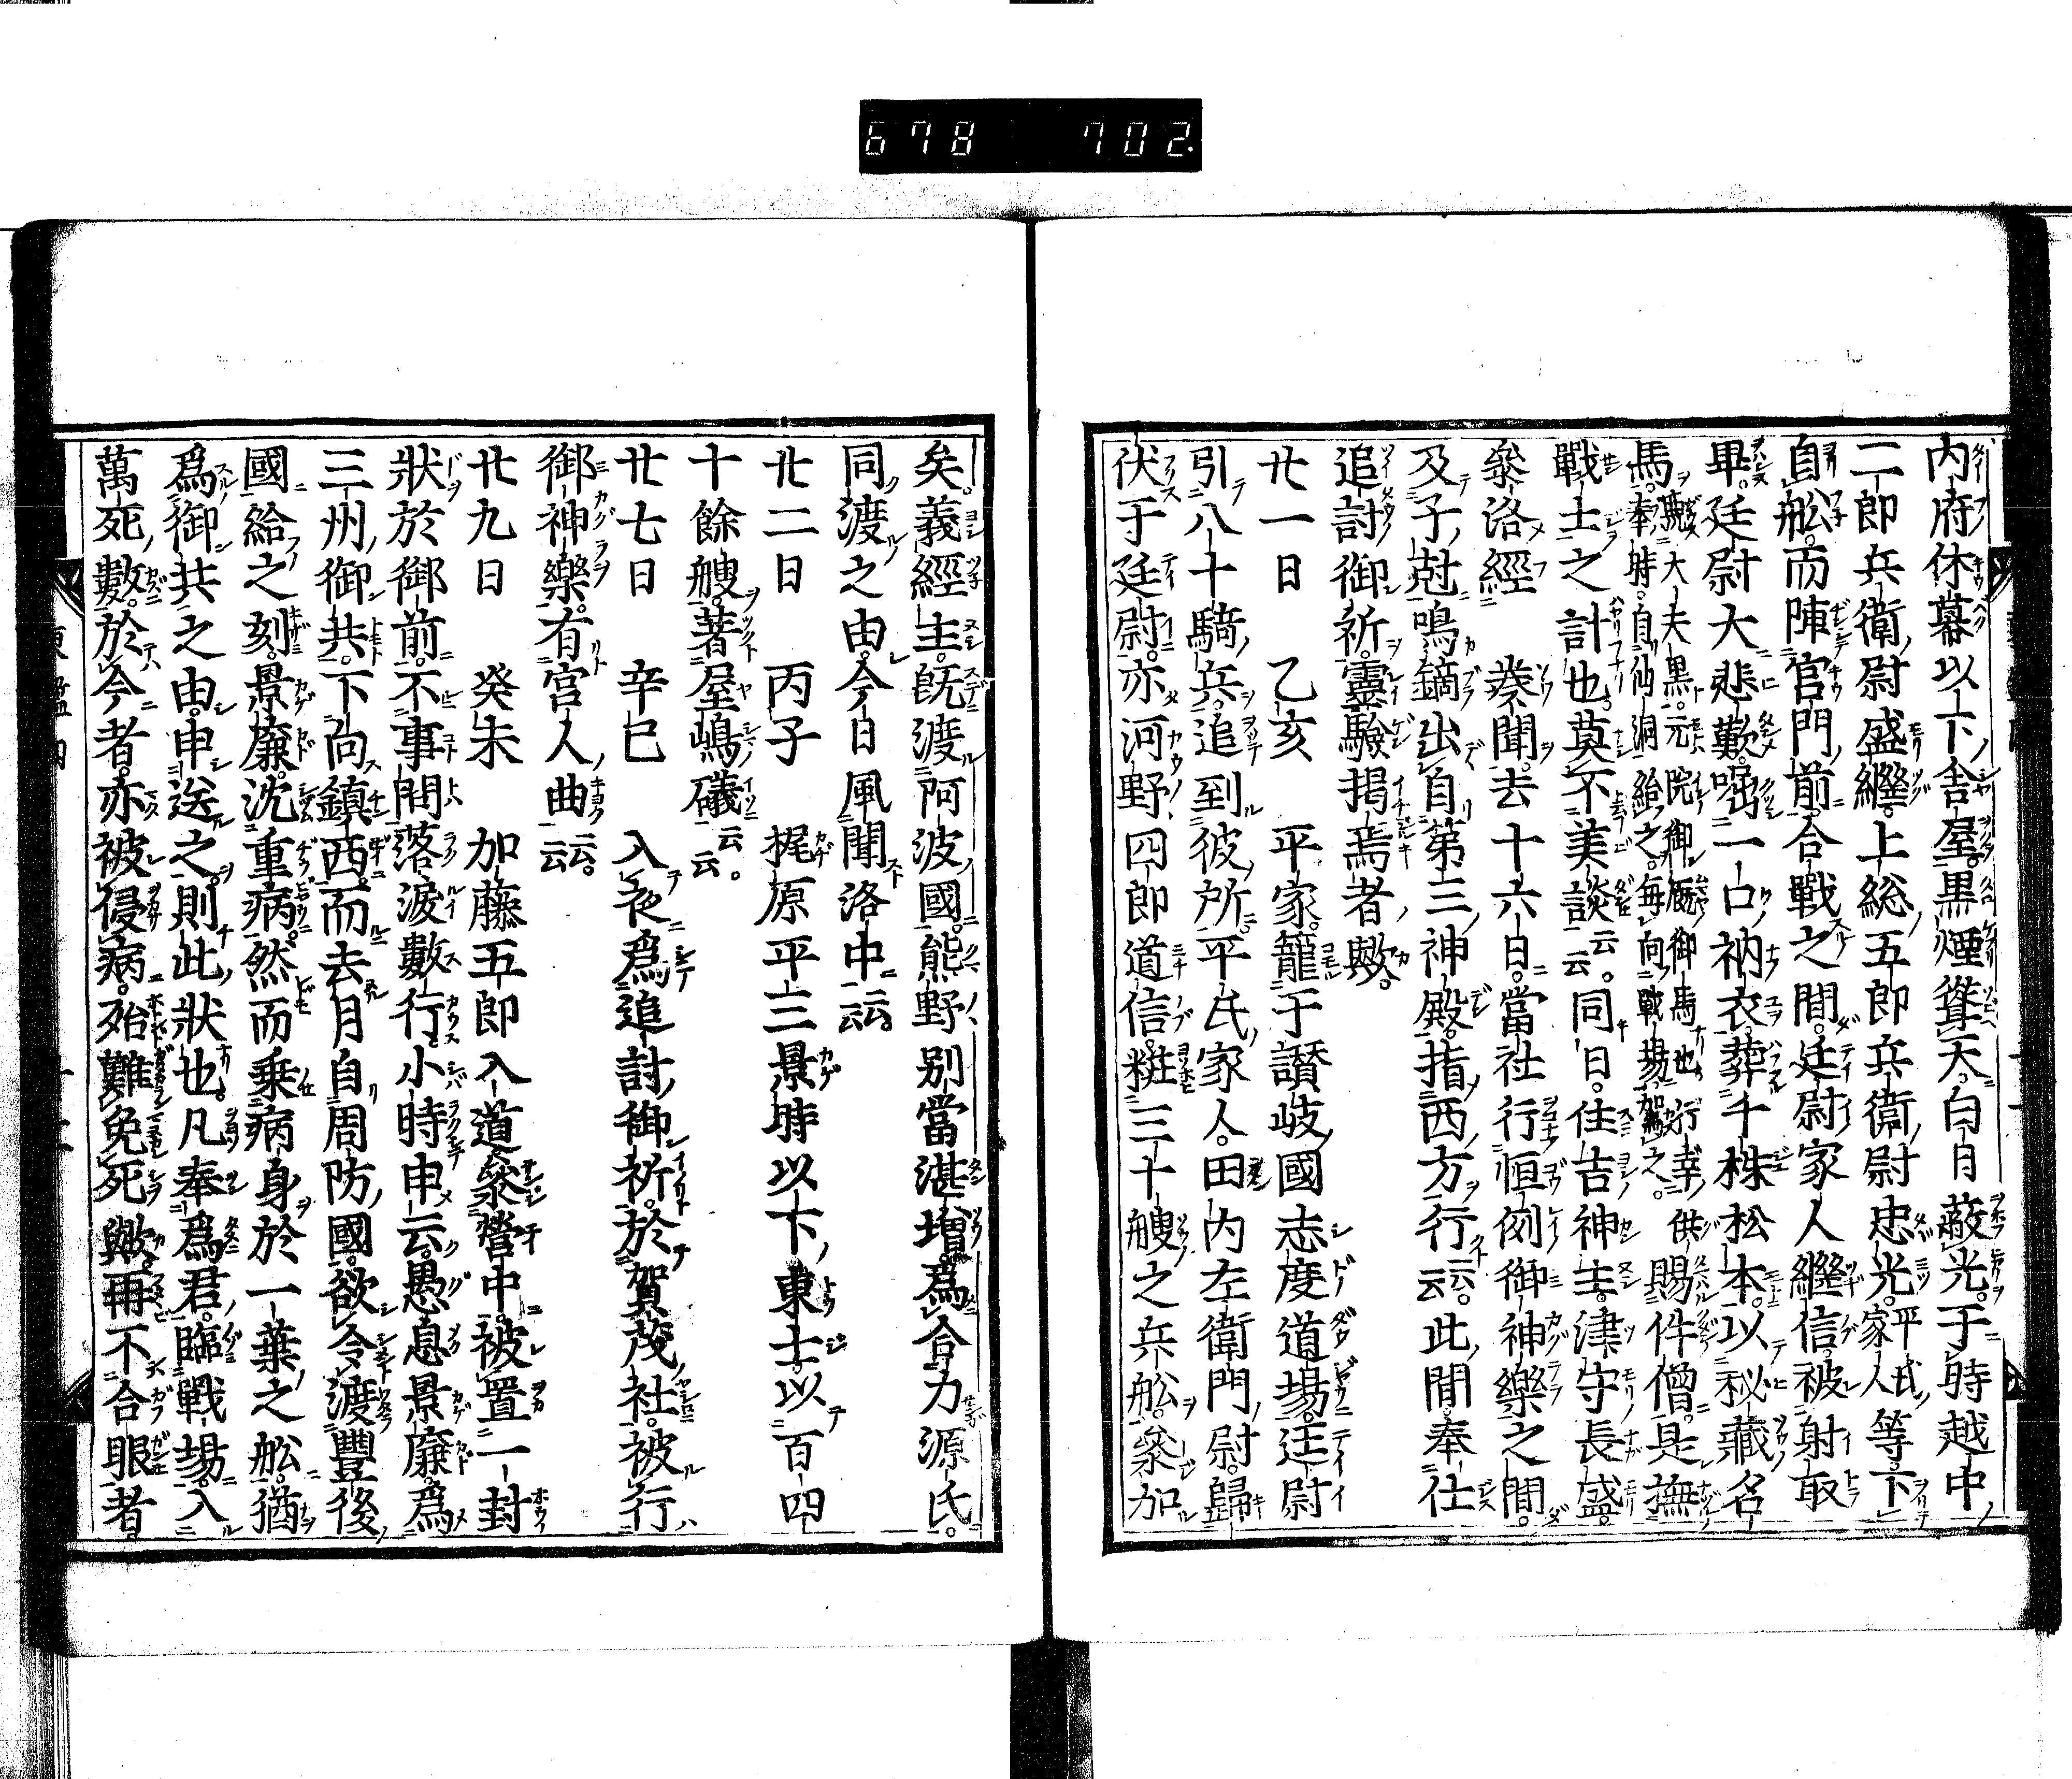 678 702.
内府休幕以下舎屋黒煙聳天白日蔽光于時越中
二郎兵衛尉盛繼上総五郎兵衛尉忠光平氏家人等下
自舩而陣官門前合戰之間廷尉家人繼信被射取
畢廷尉大悲歎啒一口衲衣葬千株松本以秘藏名
馬號大夫黒元院御厩御馬也行幸供奉時自仙洞給之毎向戰場駕之賜件僧是撫
戰士之計也莫不美談云云同日住吉神主津守長盛
參洛經 奏聞去十六日當社行恒例御神樂之間
及子尅鳴鏑出自第三神殿指西方行云云此間奉仕
追討御祈靈驗掲焉者歟
廿一日 乙亥 平家籠于讃岐國志度道場廷尉
引八十騎兵追到彼所平氏家人田内左衛門尉歸
伏于廷尉亦河野四郎道信粧三十艘之兵舩參加
矣義經主既渡阿波國熊野別當湛増爲合力源氏
同渡之由今日風聞洛中云云
廿二日 丙子 梶原平三景時以下東士以百四
十餘艘著屋嶋礒云云
廿七日 辛巳 入夜爲追討御祈於賀茂社被行
御神樂有宮人曲云云
廿九日 癸未 加藤五郎入道參營中被置一封
狀於御前不事問落涙數行小時申云愚息景廉爲
三州御共下向鎮西而去月自周防國欲令渡豐後
國給之刻景廉沈重病然而乘病身於一葉之舩猶
爲御共之由申送之則此狀也凡奉爲君臨戰場入
萬死數於今者亦被侵病殆難免死歟再不合眼者